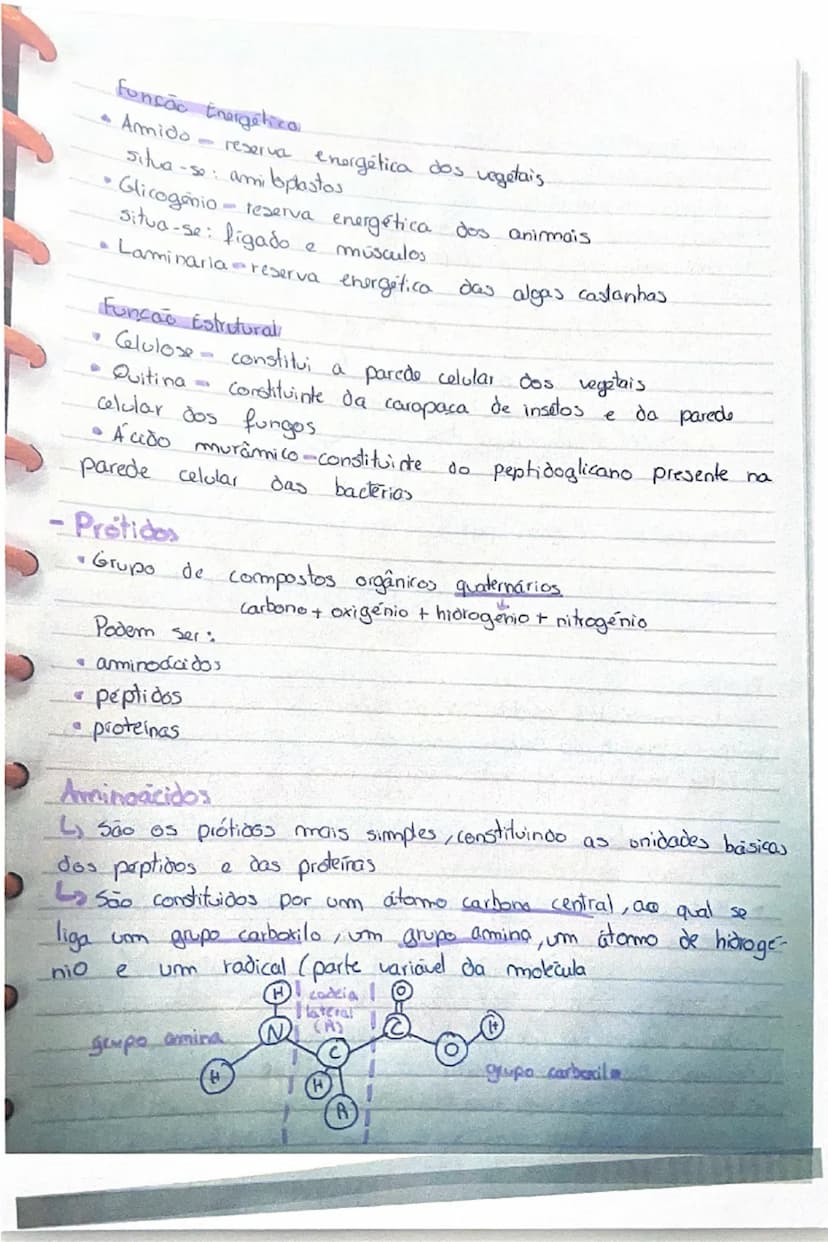 Função Energética
• Amido – reserva energética dos vegetais
situa-se: amiloplastos
• Glicogénio – reserva energética dos animais
situa-se: fígado e músculos
• Laminaria – reserva energética das algas castanhas
Função Estrutural
• Celulose – constitui a parede celular dos vegetais
• Quitina – constituinte da carapaça de insetos e da parede
celular dos fungos
• Ácido murâmico – constituinte do peptidoglicano presente na
parede celular das bactérias
- Prótidos
• Grupo de compostos orgânicos quaternários
↓
carbono + oxigénio + hidrogénio + nitrogénio
Podem ser:
• aminoácidos
• péptidos
• proteínas
Aminoácidos
↳ São os prótidos mais simples, constituindo as unidades básicas
dos péptidos e das proteínas
↳ São constituídos por um átomo carbono central, ao qual se
liga um grupo carboxilo, um grupo amina, um átomo de hidrogé-
nio e um radical (parte variável da molécula
H cadeia O
lateral
grupo amina N (R) C H
C O
H H grupo carboxilo
R